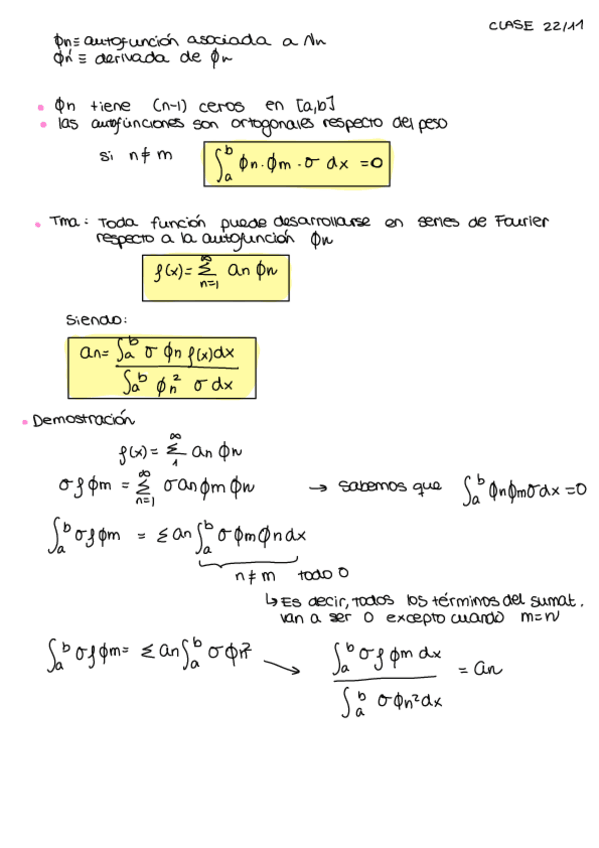 CLASE 22/11
ϕn ≡ autofunción asociada a λn
ϕn' ≡ derivada de ϕn
• ϕn tiene (n-1) ceros en [a,b]
• las autofunciones son ortogonales respecto del peso
si n ≠ m ∫ₐᵇ ϕn · ϕm · σ dx = 0
• Tma: Toda función puede desarrollarse en series de Fourier
respecto a la autofunción ϕn
f(x) = ∞ Σ n=1 an ϕn
Siendo:
an = ∫ₐᵇ σ ϕn f(x) dx
∫ₐᵇ ϕn² σ dx
• Demostración
f(x) = ∞ Σ 1 an ϕn
σ f ϕm = ∞ Σ n=1 σ an ϕm ϕn → sabemos que ∫ₐᵇ ϕn ϕm σ dx = 0
∫ₐᵇ σ f ϕm = Σ an ∫ₐᵇ σ ϕm ϕn dx
n ≠ m todo 0
↳ Es decir, todos los términos del sumat.
van a ser 0 excepto cuando m=n
∫ₐᵇ σ f ϕm = Σ an ∫ₐᵇ σ ϕn² → ∫ₐᵇ σ f ϕm dx = an
∫ₐᵇ σ ϕn² dx